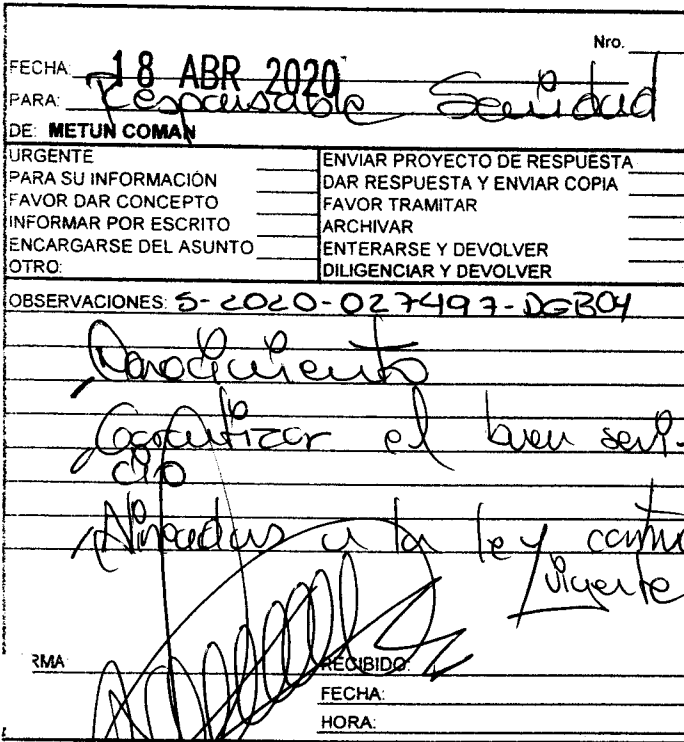 Nro.
FECHA: 18 ABR 2020
PARA: Responsable Sanidad
DE: METUN COMAN
URGENTE
PARA SU INFORMACIÓN
FAVOR DAR CONCEPTO
INFORMAR POR ESCRITO
ENCARGARSE DEL ASUNTO
OTRO:
ENVIAR PROYECTO DE RESPUESTA
DAR RESPUESTA Y ENVIAR COPIA
FAVOR TRAMITAR
ARCHIVAR
ENTERARSE Y DEVOLVER
DILIGENCIAR Y DEVOLVER
OBSERVACIONES: S-2020-027497-DGB04
Conocimiento
Garantizar el buen servi-
cio
a la ley
vigente
RMA
RECIBIDO:
FECHA:
HORA: